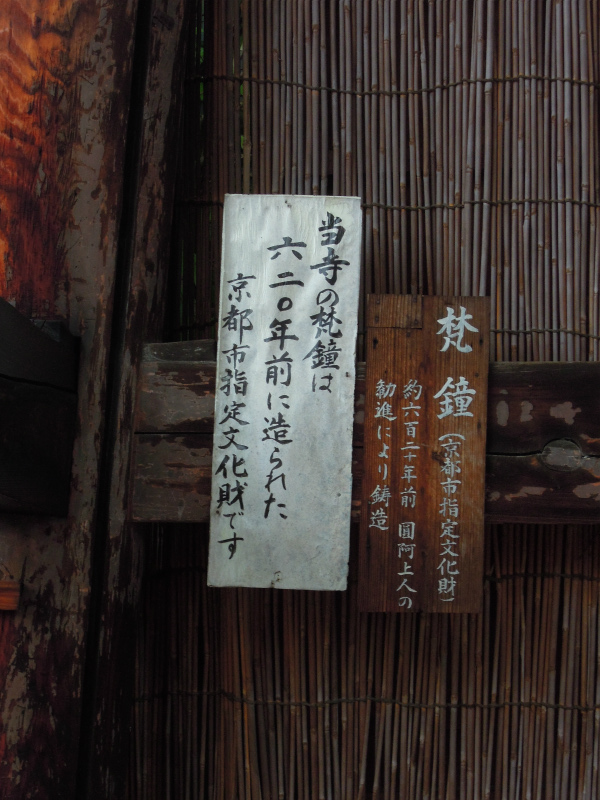 梵鐘(京都市指定文化財)
約六百二十年前 圓阿上人の
勧進により鋳造
当寺の梵鐘は
六二〇年前に造られた
京都市指定文化財です